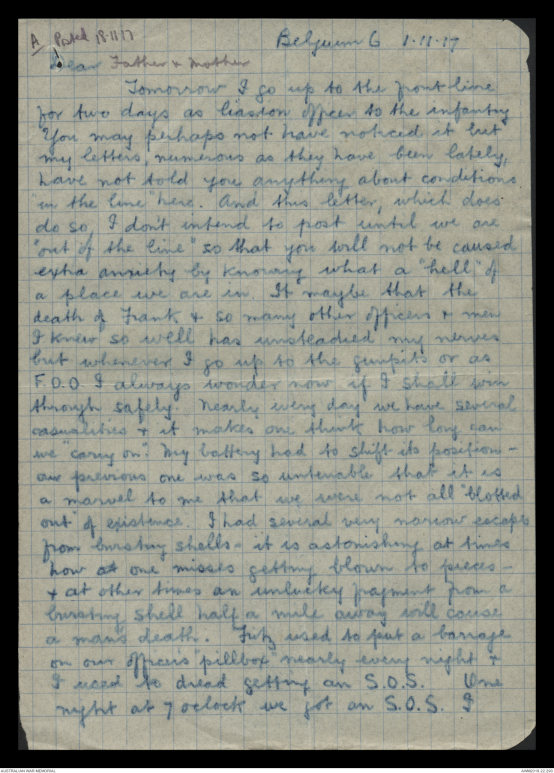 A Posted 18-11-17
Belgium 6 1-11-17
Dear Father & Mother
Tomorrow I go up to the front line
for two days as liasion officer to the infantry
You may perhaps not have noticed it but
my letters, numerous as they have been lately,
have not told you anything about conditions
in the line "here. And this letter, which does
do so, I don't intend to post until we are
"out of the line" so that you will not be caused
extra anxiety by knowing what a "hell" of
a place we are in. It maybe that the
death of Frank & so many other officers & men
I knew so well has unsteadied my nerves
but whenever I go up to the gunpits or as
F.O.O. I always wonder now if I shall win
through safely. Nearly every day we have several
casualities & it makes one think how long can
we "carry on". My battery had to shift its position -
our previous one was so untenable that it is
a marvel to me that we were not all "blotted
out" of existence. I had several very narrow escapes
from bursting shells - it is astonishing at times
how one misses getting blown to pieces -
& at other times an unlucky fragment from a
bursting shell half a mile away will cause
a man's death. Fritz used to put a barrage
on our officers "pillbox" nearly every night &
I used to dread getting an S.O.S. One
night at 7 oclock we got an S.O.S. I
AUSTRALIAN WAR MEMORIAL